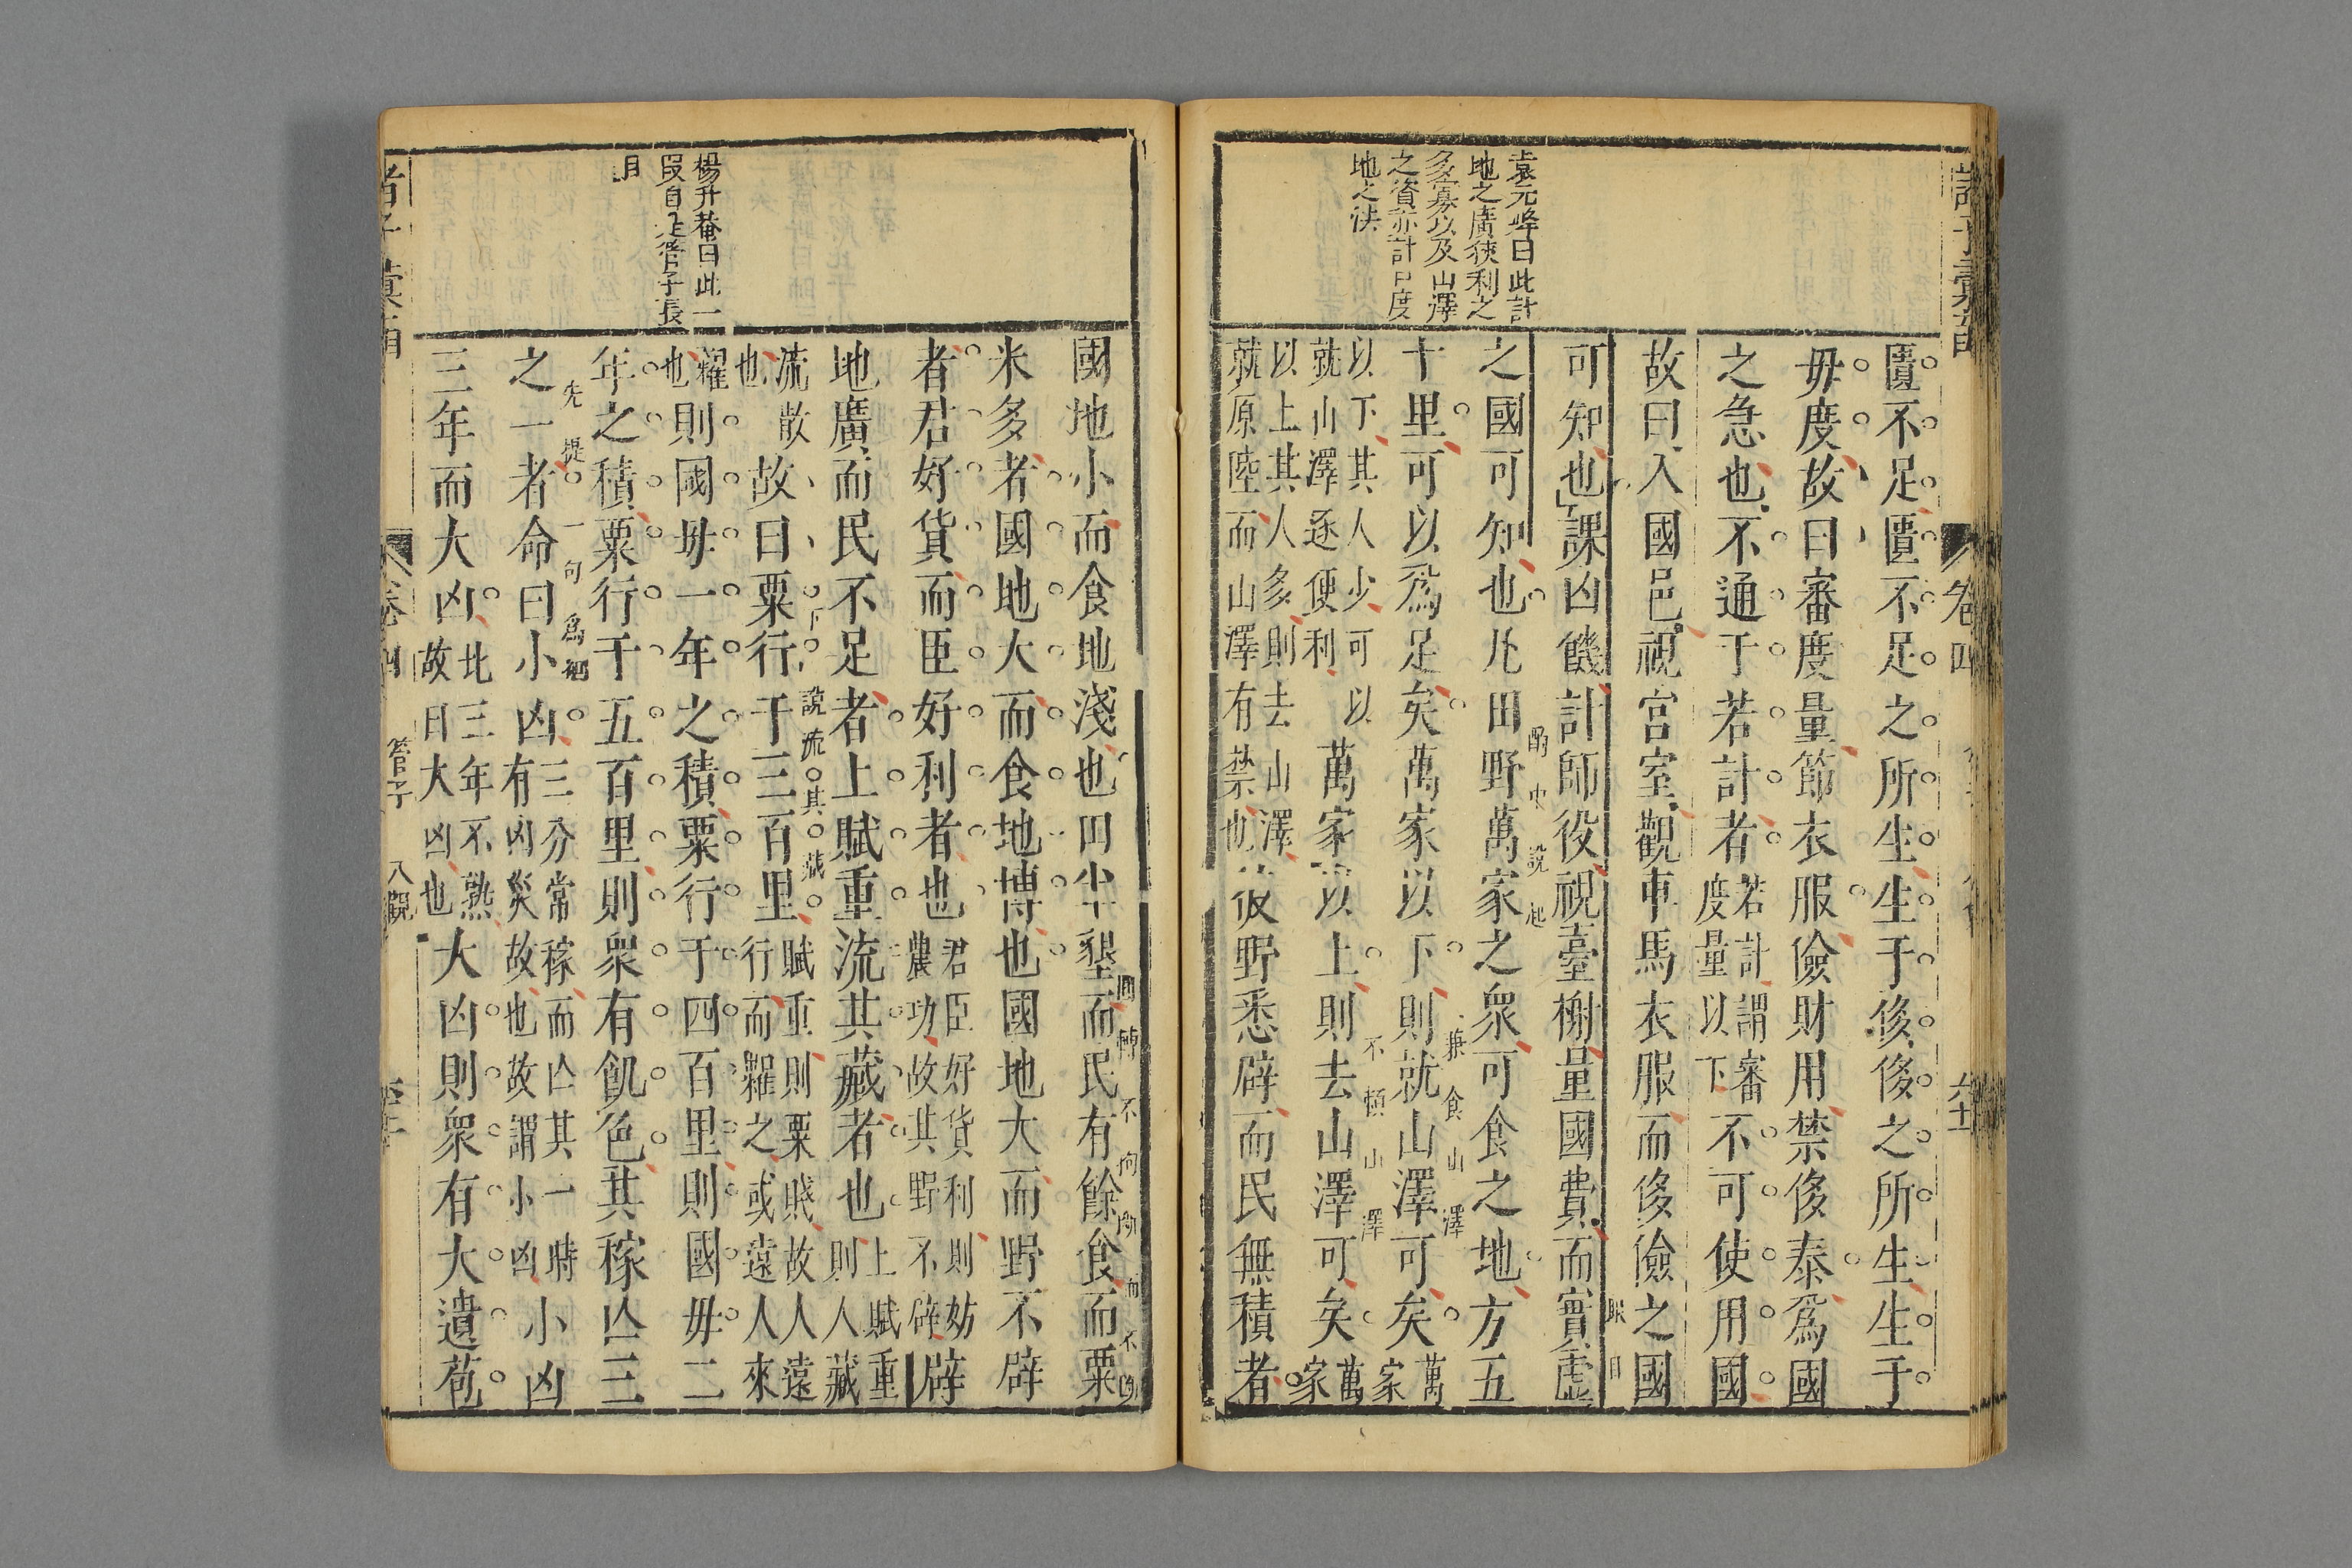 諸子彙函
卷四
六十一
袁元峰曰此計
地之廣狹利之
多寡以及山澤
之資亦計口度
地之法
匱不足匱不足之所生生于侈侈之所生生于
毋度故曰審度量節衣服儉財用禁侈泰爲國
之急也不通于若計者若計謂審度量以下不可使用國
故曰入國邑視宮室觀車馬衣服而侈儉之國
可知也課凶饑計師役視臺榭量國費而實虛
眼目
之國可知也凡田野萬家之衆可食之地方五
酌中說起
十里可以爲足矣萬家以下則就山澤可矣萬家
兼食山澤
以下其人少可以就山澤逐便利萬家以上則去山澤可矣萬家
不傾山澤
以上其人多則去山澤就原陸而山澤有禁也彼野悉辟而民無積者
國地小而食地淺也田半墾而民有餘食而粟
米多者國地大而食地博也國地大而野不辟
者君好貨而臣好利者也君臣好貨利則妨農功故其野不辟辟
地廣而民不足者上賦重流其藏者也上賦重則人藏
流散也故曰粟行于三百里賦重則粟賤故人遠行而糶之或遠人來
下說流其藏
糶也則國毋一年之積粟行于四百里則國毋二
年之積粟行于五百里則衆有飢色其稼亡三
之一者命曰小凶三分常稼而亡其一時有凶災故也故謂小凶小凶
先提一句爲綱
三年而大凶比三年不熟故曰大凶也大凶則衆有大遺苞
楊升菴曰此一
段自是管子長
目
管子
八觀